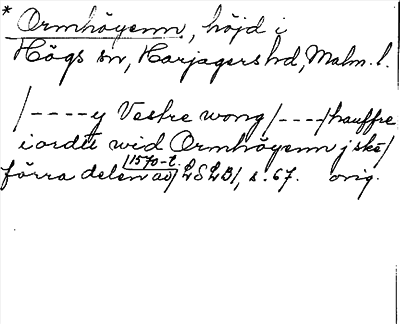 * Ormhöyenn, höjd i
Högs sn, Harjagers hd, Malm. l.
/----y Vestre wong/----/hauffre
iordt wid Ormhöyenn j ske/
1570-t.
förra delen av/ LSLB/, s. 67. orig.